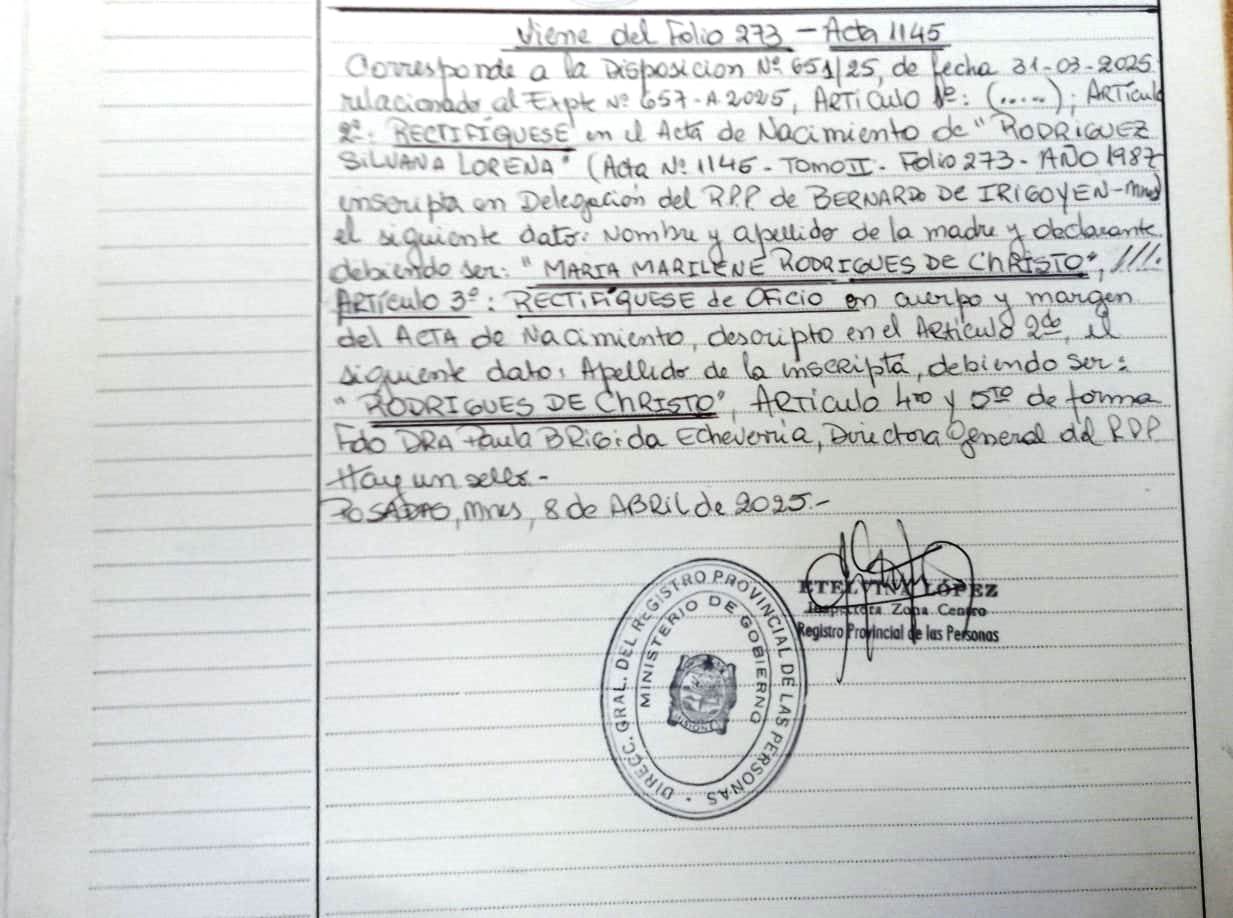 Viene del Folio 273 - Acta 1145
Corresponde a la Disposicion Nº 651/25, de fecha 31-03-2025
relacionado al Expte Nº 657-A-2025, ARTiculo 1º: (.....); ARTiculo
2º: RECTIFÍQUESE en el Acta de Nacimiento de "RODRIGUEZ
SILVANA LORENA" (Acta Nº 1145 - TOMO II - Folio 273 - AÑO 1987
inscripta en Delegación del RPP de BERNARDO DE IRIGOYEN-Mnes)
el siguiente dato: Nombre y apellido de la madre y declarante
debiendo ser: "MARIA MARILENE RODRIGUES DE ChRISTO", ////.
ARTÍculo 3º: RECTIFÍQUESE de OFicio en cuerpo y margen
del ACTA de Nacimiento, descripto en el Articulo 2do, el
siguiente dato: Apellido de la inscripta, debiendo ser:
"RODRIGUES DE ChRISTO", ARTiculo 4to y 5TO de forma
Fdo DRA Paula BRigida Echeverria, Directora General del RPP
Hay un sello.-
POSADAS, Mnes, 8 de ABRil de 2025.-
ETELVINA LÓPEZ
Inspectora Zona Centro
Registro Provincial de las Personas
DIRECC. GRAL. DEL REGISTRO PROVINCIAL DE LAS PERSONAS
MINISTERIO DE GOBIERNO
MISIONES